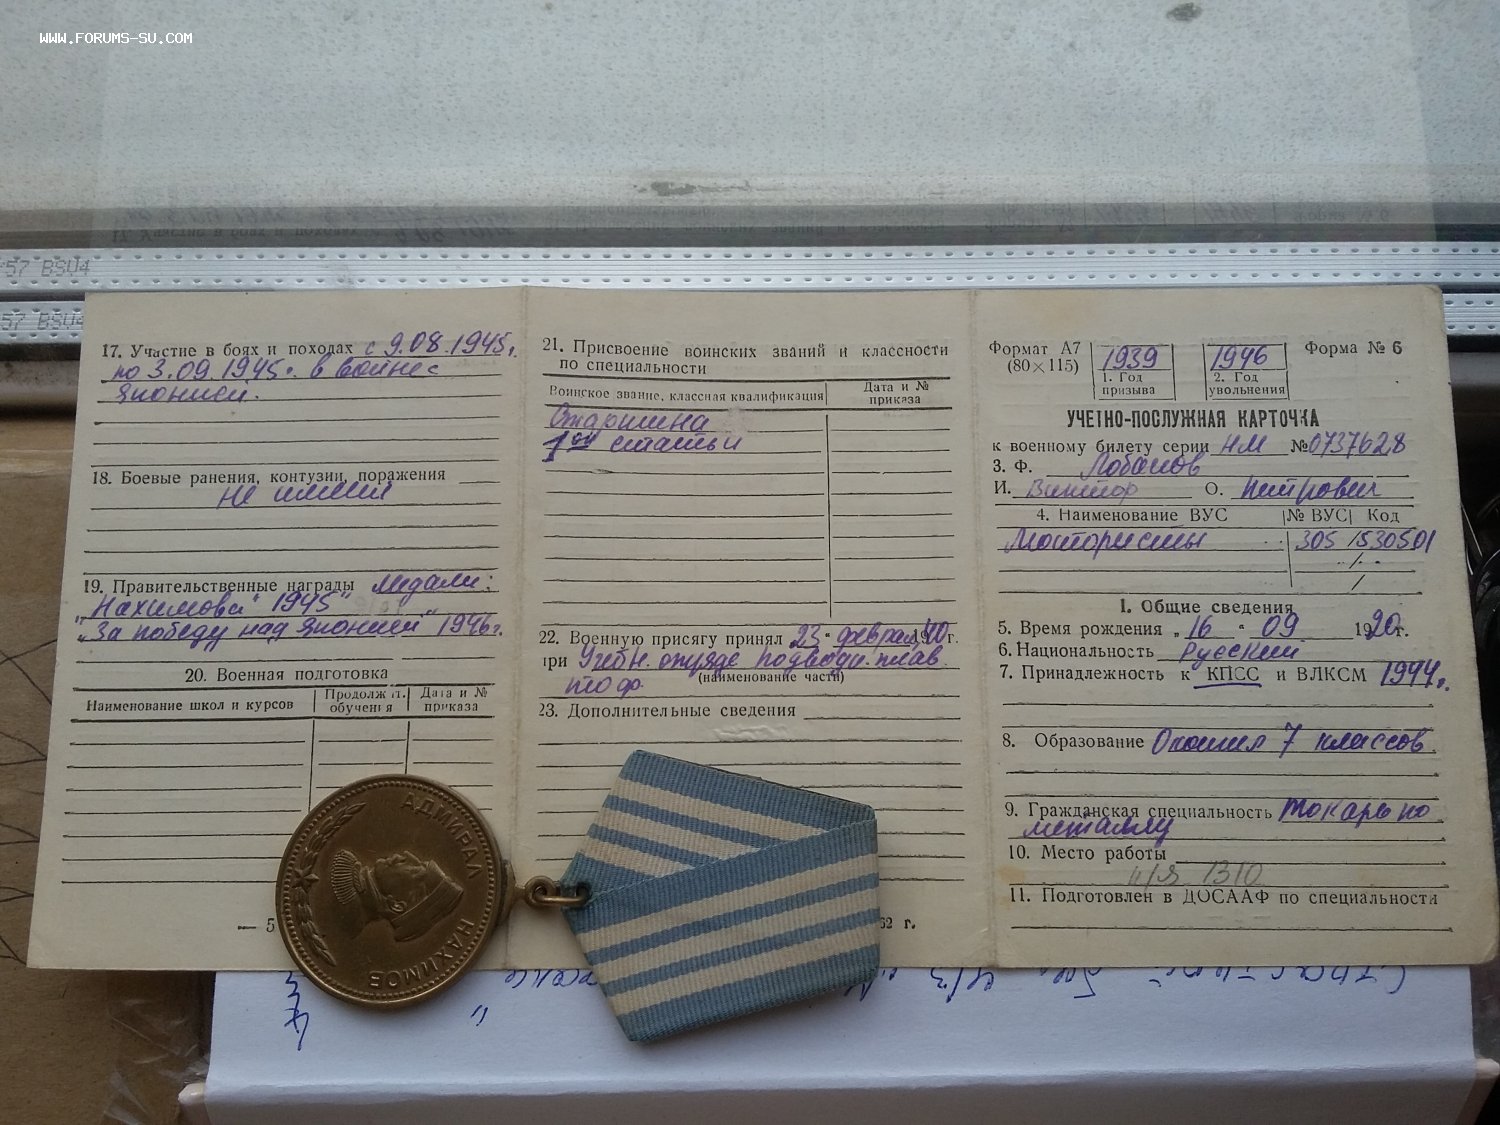 WWW.FORUMS-SU.COM
57 BSU4
57 BSU4
17. Участие в боях и походах с 9.08.1945г.
по 3.09.1945г. в войне с
Японией.
18. Боевые ранения, контузии, поражения
не имел
19. Правительственные награды медали:
"Нахимова" 1945"
"За победу над Японией" 1946г.
20. Военная подготовка
Наименование школ и курсов
Продолжит. обучения
Дата и № приказа
— 5
21. Присвоение воинских званий и классности
по специальности
Воинское звание, классная квалификация
Дата и № приказа
Старшина
1ой статьи
22. Военную присягу принял 23 " феврал 1940 г.
при Учебн. отряде подводн. плав.
(наименование части)
тоф.
23. Дополнительные сведения
62 г.
Формат А7
(80×115)
1939
1. Год призыва
1946
2. Год увольнения
Форма № 6
УЧЕТНО-ПОСЛУЖНАЯ КАРТОЧКА
к военному билету серии НМ № 0737628
3. Ф. Лобанов
И. Виктор О. Петрович
4. Наименование ВУС № ВУС Код
Мотористы 305 / 530501
I. Общие сведения
5. Время рождения „ 16 " 09 1920 г.
6. Национальность Русский
7. Принадлежность к КПСС и ВЛКСМ 1944г.
8. Образование Окончил 7 классов.
9. Гражданская специальность токарь по
металлу
10. Место работы
п/я 1310
11. Подготовлен в ДОСААФ по специальности
АДМИРАЛ НАХИМОВ